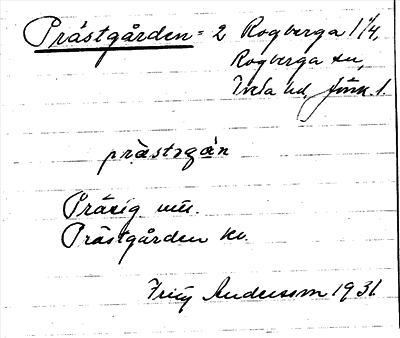 Prästgården = 2 Rogberga 1 1/4,
Rogberga sn,
Tveta hd, Jönk. l.
prästgån
Prästgården kv.
Fritz Andersson 1931